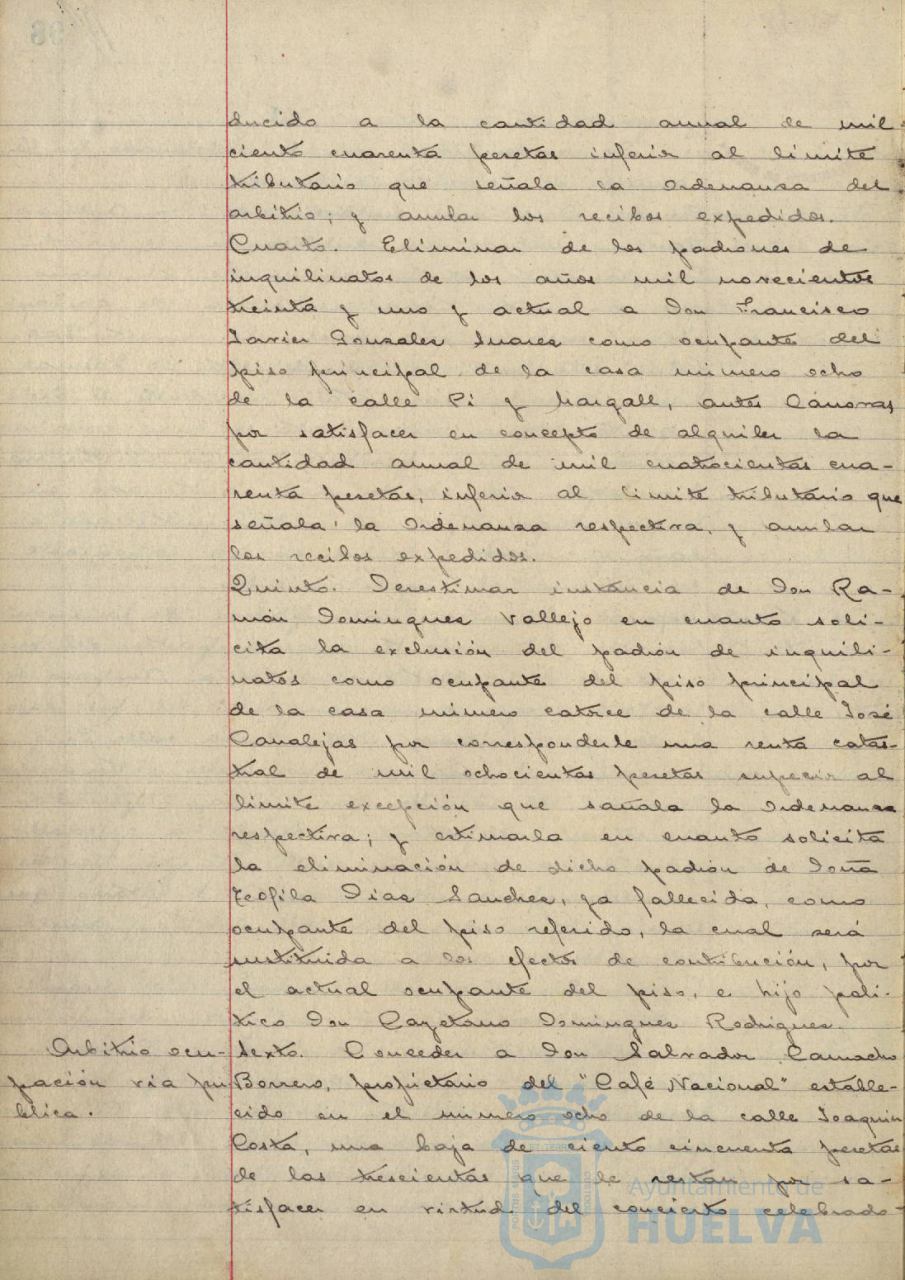 ducido a la cantidad anual de mil
ciento cuarenta pesetas inferior al límite
tributario que señala la Ordenanza del
arbitrio; y anular los recibos expedidos.
Cuarto. Eliminar de los padrones de
inquilinatos de los años mil novecientos
treinta y uno y actual a Don Francisco
Javier Gonzales Suarez como ocupante del
piso principal de la casa número ocho
de la calle Pí y Margall, antes Cánovas
por satisfacer en concepto de alquiler la
cantidad anual de mil cuatrocientas cua-
renta pesetas, inferior al limite tributario que
señala la Ordenanza respectiva, y anular
los recibos expedidos.
Quinto. Desestimar instancia de Don Ra-
món Domingues Vallejo en cuanto soli-
cita la exclusión del padrón de inquili-
natos como ocupante del piso principal
de la casa número catorce de la calle José
Canalejas por corresponderle una renta catas-
tral de mil ochocientas pesetas superior al
límite excepción que sañala la Ordenanza
respectiva; y estimarla en cuanto solicita
la eliminación de dicho padrón de Doña
Teofila Dias Sanches, ya fallecida, como
ocupante del piso referido, la cual será
sustituida a los efectos de contribución, por
el actual ocupante del piso, e hijo polí-
tico Don Cayetano Domingues Rodrigues.
Arbitrio ocu-
pación vía pú
blica.
Sexto. Conceder a Don Salvador Camacho
Borrero, propietario del "Café Nacional" estable-
cido en el número ocho de la calle Joaquin
Costa, una baja de ciento cincuenta pesetas
de las trescientas que le restan por sa-
tisfacer en virtud del concierto celebrado
Ayuntamiento de
HUELVA